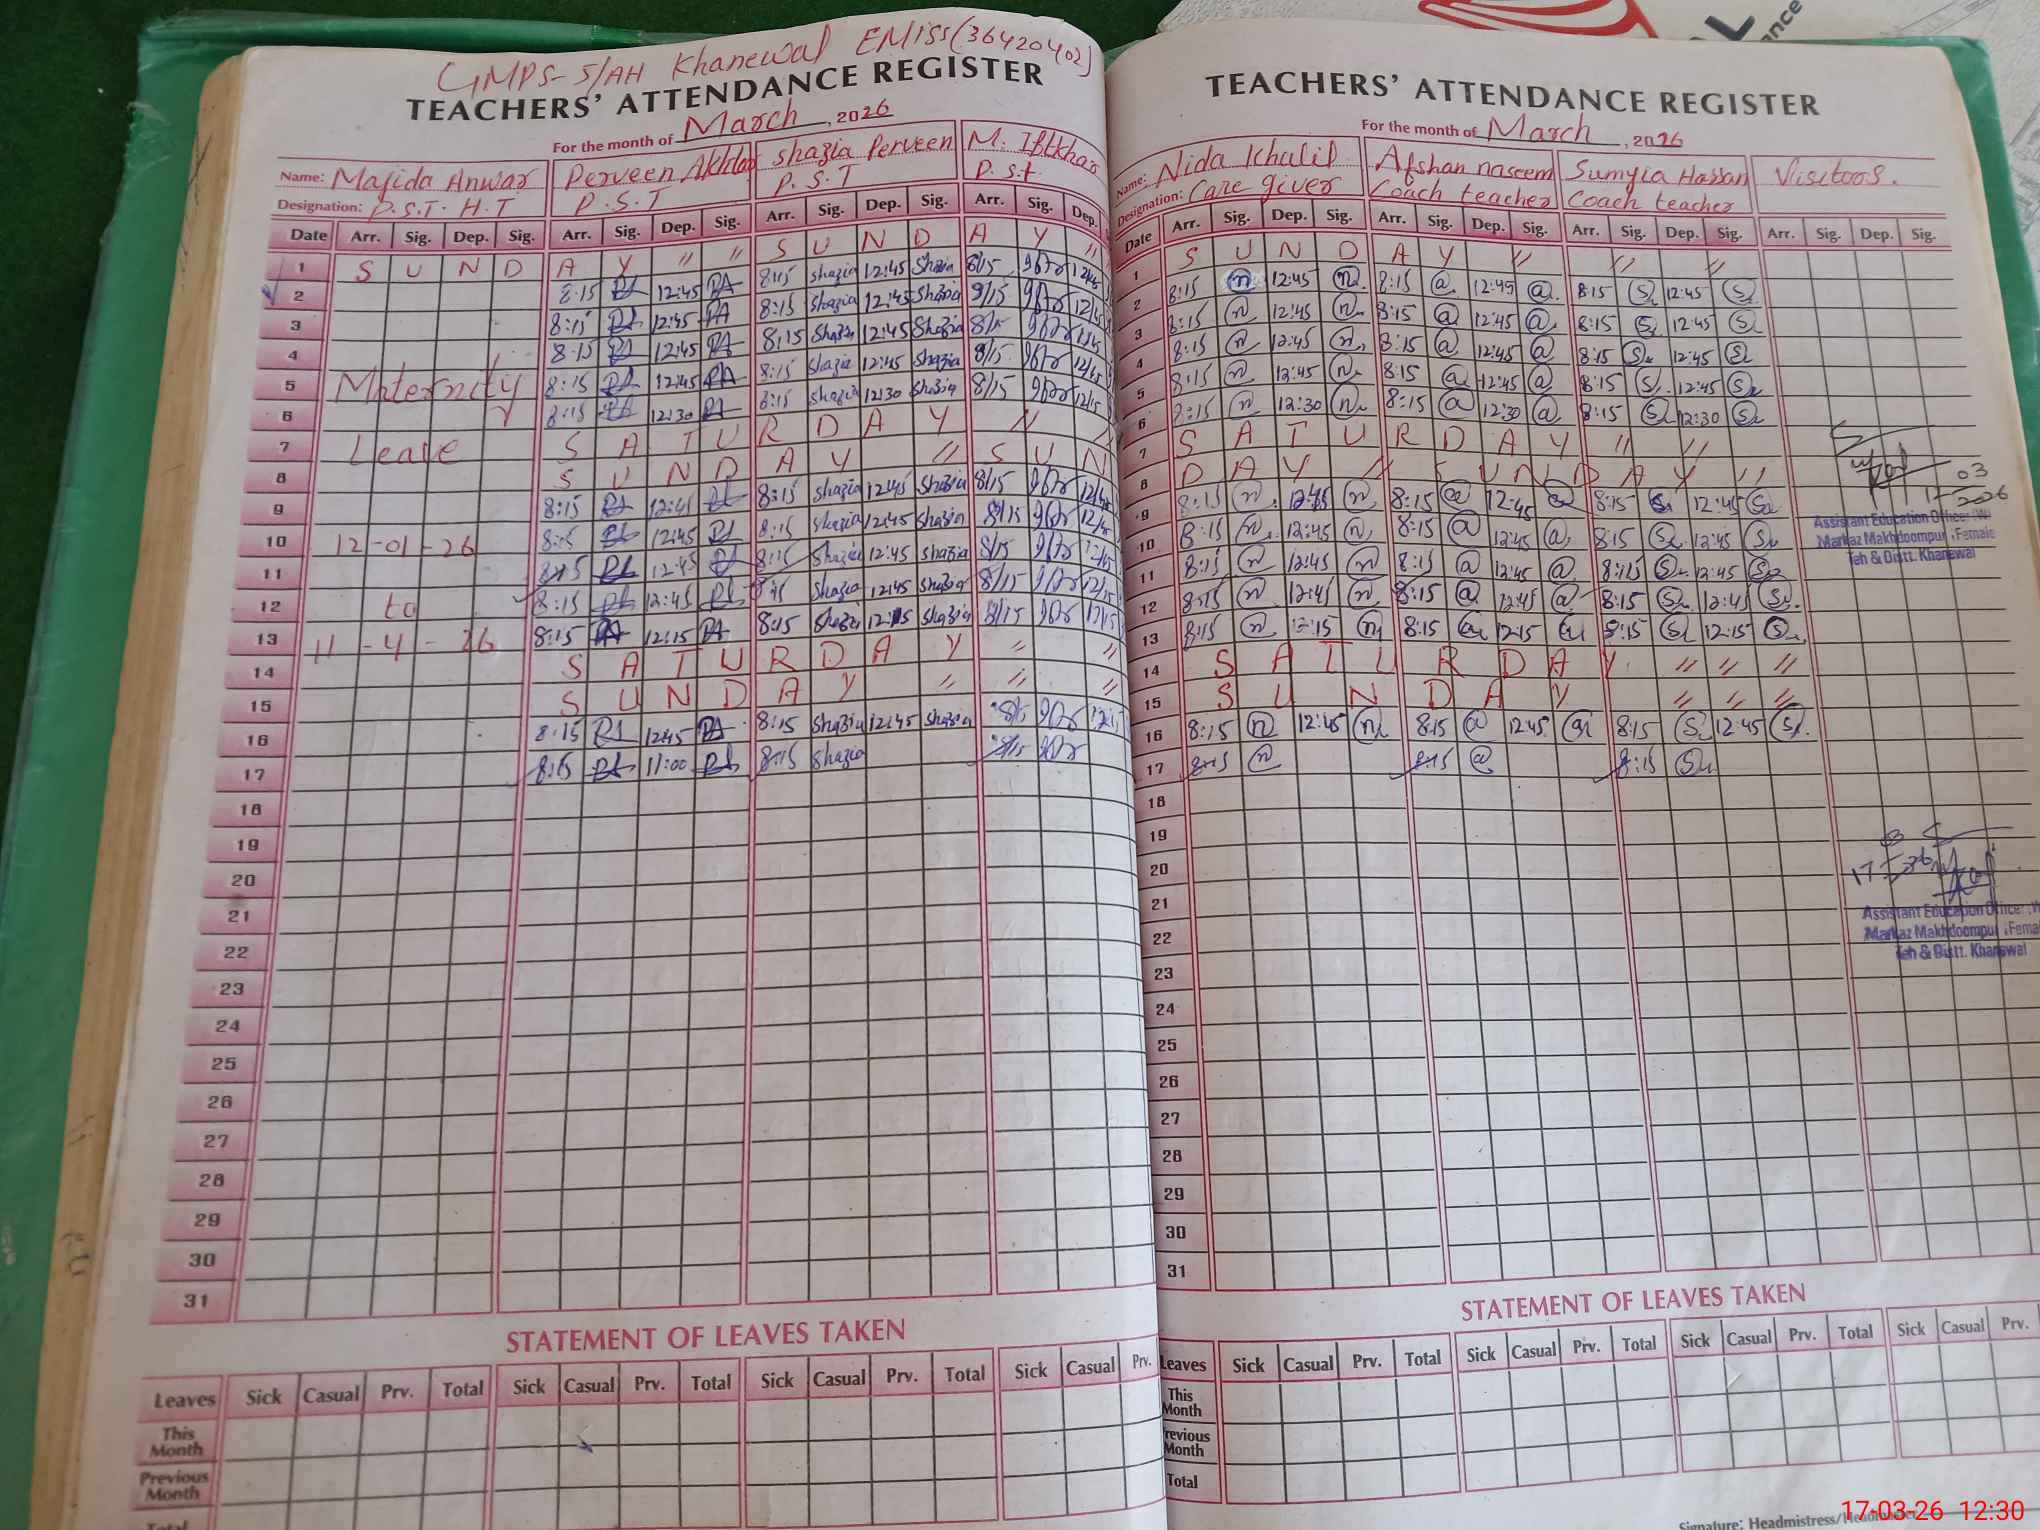 GMPS-5/AH Khanewal EMISS(36420402)
TEACHERS' ATTENDANCE REGISTER
For the month of March, 2026
Name: Majida Anwar Perveen Akhtar Shazia Perveen M. Iftkhar
Designation: P.S.T. H.T P.S.T P.S.T P.S.t.
Date Arr. Sig. Dep. Sig. Arr. Sig. Dep. Sig. Arr. Sig. Dep. Sig. Arr. Sig. Dep.
1 S U N D A Y " " S U N D A Y "
2 8:15 PA 12:45 PA 8:15 shazia 12:45 Shazia 8/15 12/45
3 8:15 PA 12:45 PA 8:15 Shazia 12:45 Shazia 9/15 12/45
4 8:15 PA 12:45 PA 8:15 Shazia 12:45 Shazia 8/15
5 Maternity 8:15 PA 12:45 PA 8:15 shazia 12:45 Shazia 8/15 12/45
6 8:15 PA 12:30 PA 8:15 shazia 12:30 Shazia 8/15
7 Leave S A T U R D A Y "
8 S U N D A Y " S U N
9 8:15 PA 12:45 PA 8:15 shazia 12:45 Shazia 8/15 12/45
10 12-01-26 8:15 PA 12:45 PA 8:15 shazia 12:45 Shazia 8/15 12/45
11 8:15 PA 12:45 PA 8:15 Shazia 12:45 shazia 8/15 12/45
12 to 8:15 PA 12:45 PA 8:15 Shazia 12:45 Shazia 8/15
13 11-4-26 8:15 PA 12:15 PA 8:15 Shazia 12:15 shazia 8/15
14 S A T U R D A Y " "
15 S U N D A Y " " "
16 8:15 PA 12:45 PA 8:15 Shazia 12:45 shazia 8/15
17 8:15 PA 11:00 PA 8:15 Shazia 8/15
18
19
20
21
22
23
24
25
26
27
28
29
30
31
STATEMENT OF LEAVES TAKEN
Leaves Sick Casual Prv. Total Sick Casual Prv. Total Sick Casual Prv. Total Sick Casual Prv.
This Month
Previous Month
Total
TEACHERS' ATTENDANCE REGISTER
For the month of March, 2026
Name: Nida Khalil Afshan naseem Sumyia Hassan Visitors.
Designation: Care giver Coach teacher Coach teacher
Date Arr. Sig. Dep. Sig. Arr. Sig. Dep. Sig. Arr. Sig. Dep. Sig. Arr. Sig. Dep. Sig.
1 S U N D A Y " " "
2 8:15 n 12:45 n 8:15 a 12:45 a 8:15 S 12:45 S
3 8:15 n 12:45 n 8:15 a 12:45 a 8:15 S 12:45 S
4 8:15 n 12:45 n 8:15 a 12:45 a 8:15 S 12:45 S
5 8:15 n 12:45 n 8:15 a 12:45 a 8:15 S 12:45 S
6 8:15 n 12:30 n 8:15 a 12:30 a 8:15 S 12:30 S
7 S A T U R D A Y " "
8 D A Y " S U N D A Y "
9 8:15 n 12:45 n 8:15 a 12:45 a 8:15 S 12:45 S
10 8:15 n 12:45 n 8:15 a 12:45 a 8:15 S 12:45 S
11 8:15 n 12:45 n 8:15 a 12:45 a 8:15 S 12:45 S
12 8:15 n 12:45 n 8:15 a 12:45 a 8:15 S 12:45 S
13 8:15 n 12:15 n 8:15 a 12:15 a 8:15 S 12:15 S
14 S A T U R D A Y " " "
15 S U N D A Y " " "
16 8:15 n 12:45 n 8:15 a 12:45 a 8:15 S 12:45 S
17 8:15 n 8:15 a 8:15 S
18
19
20
21
22
23
24
25
26
27
28
29
30
31
03
2026
Assistant Education Officer (W)
Markaz Makhdoompur (Female
Teh & Distt. Khanewal
Assistant Education Officer (W
Markaz Makhdoompur (Fema
Teh & Distt. Khanewal
STATEMENT OF LEAVES TAKEN
Leaves Sick Casual Prv. Total Sick Casual Prv. Total Sick Casual Prv. Total Sick Casual Prv.
This Month
Previous Month
Total
Signature: Headmistress/Headmaster
17-03-26 12:30